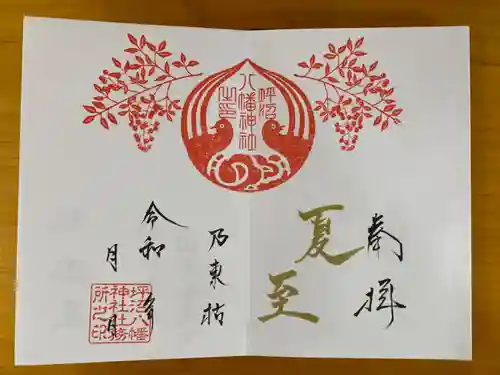 坪沼
八幡神社
之印
奉拝
夏至
乃東枯
令和 年
月 日
坪沼八幡
神社社務
所之印